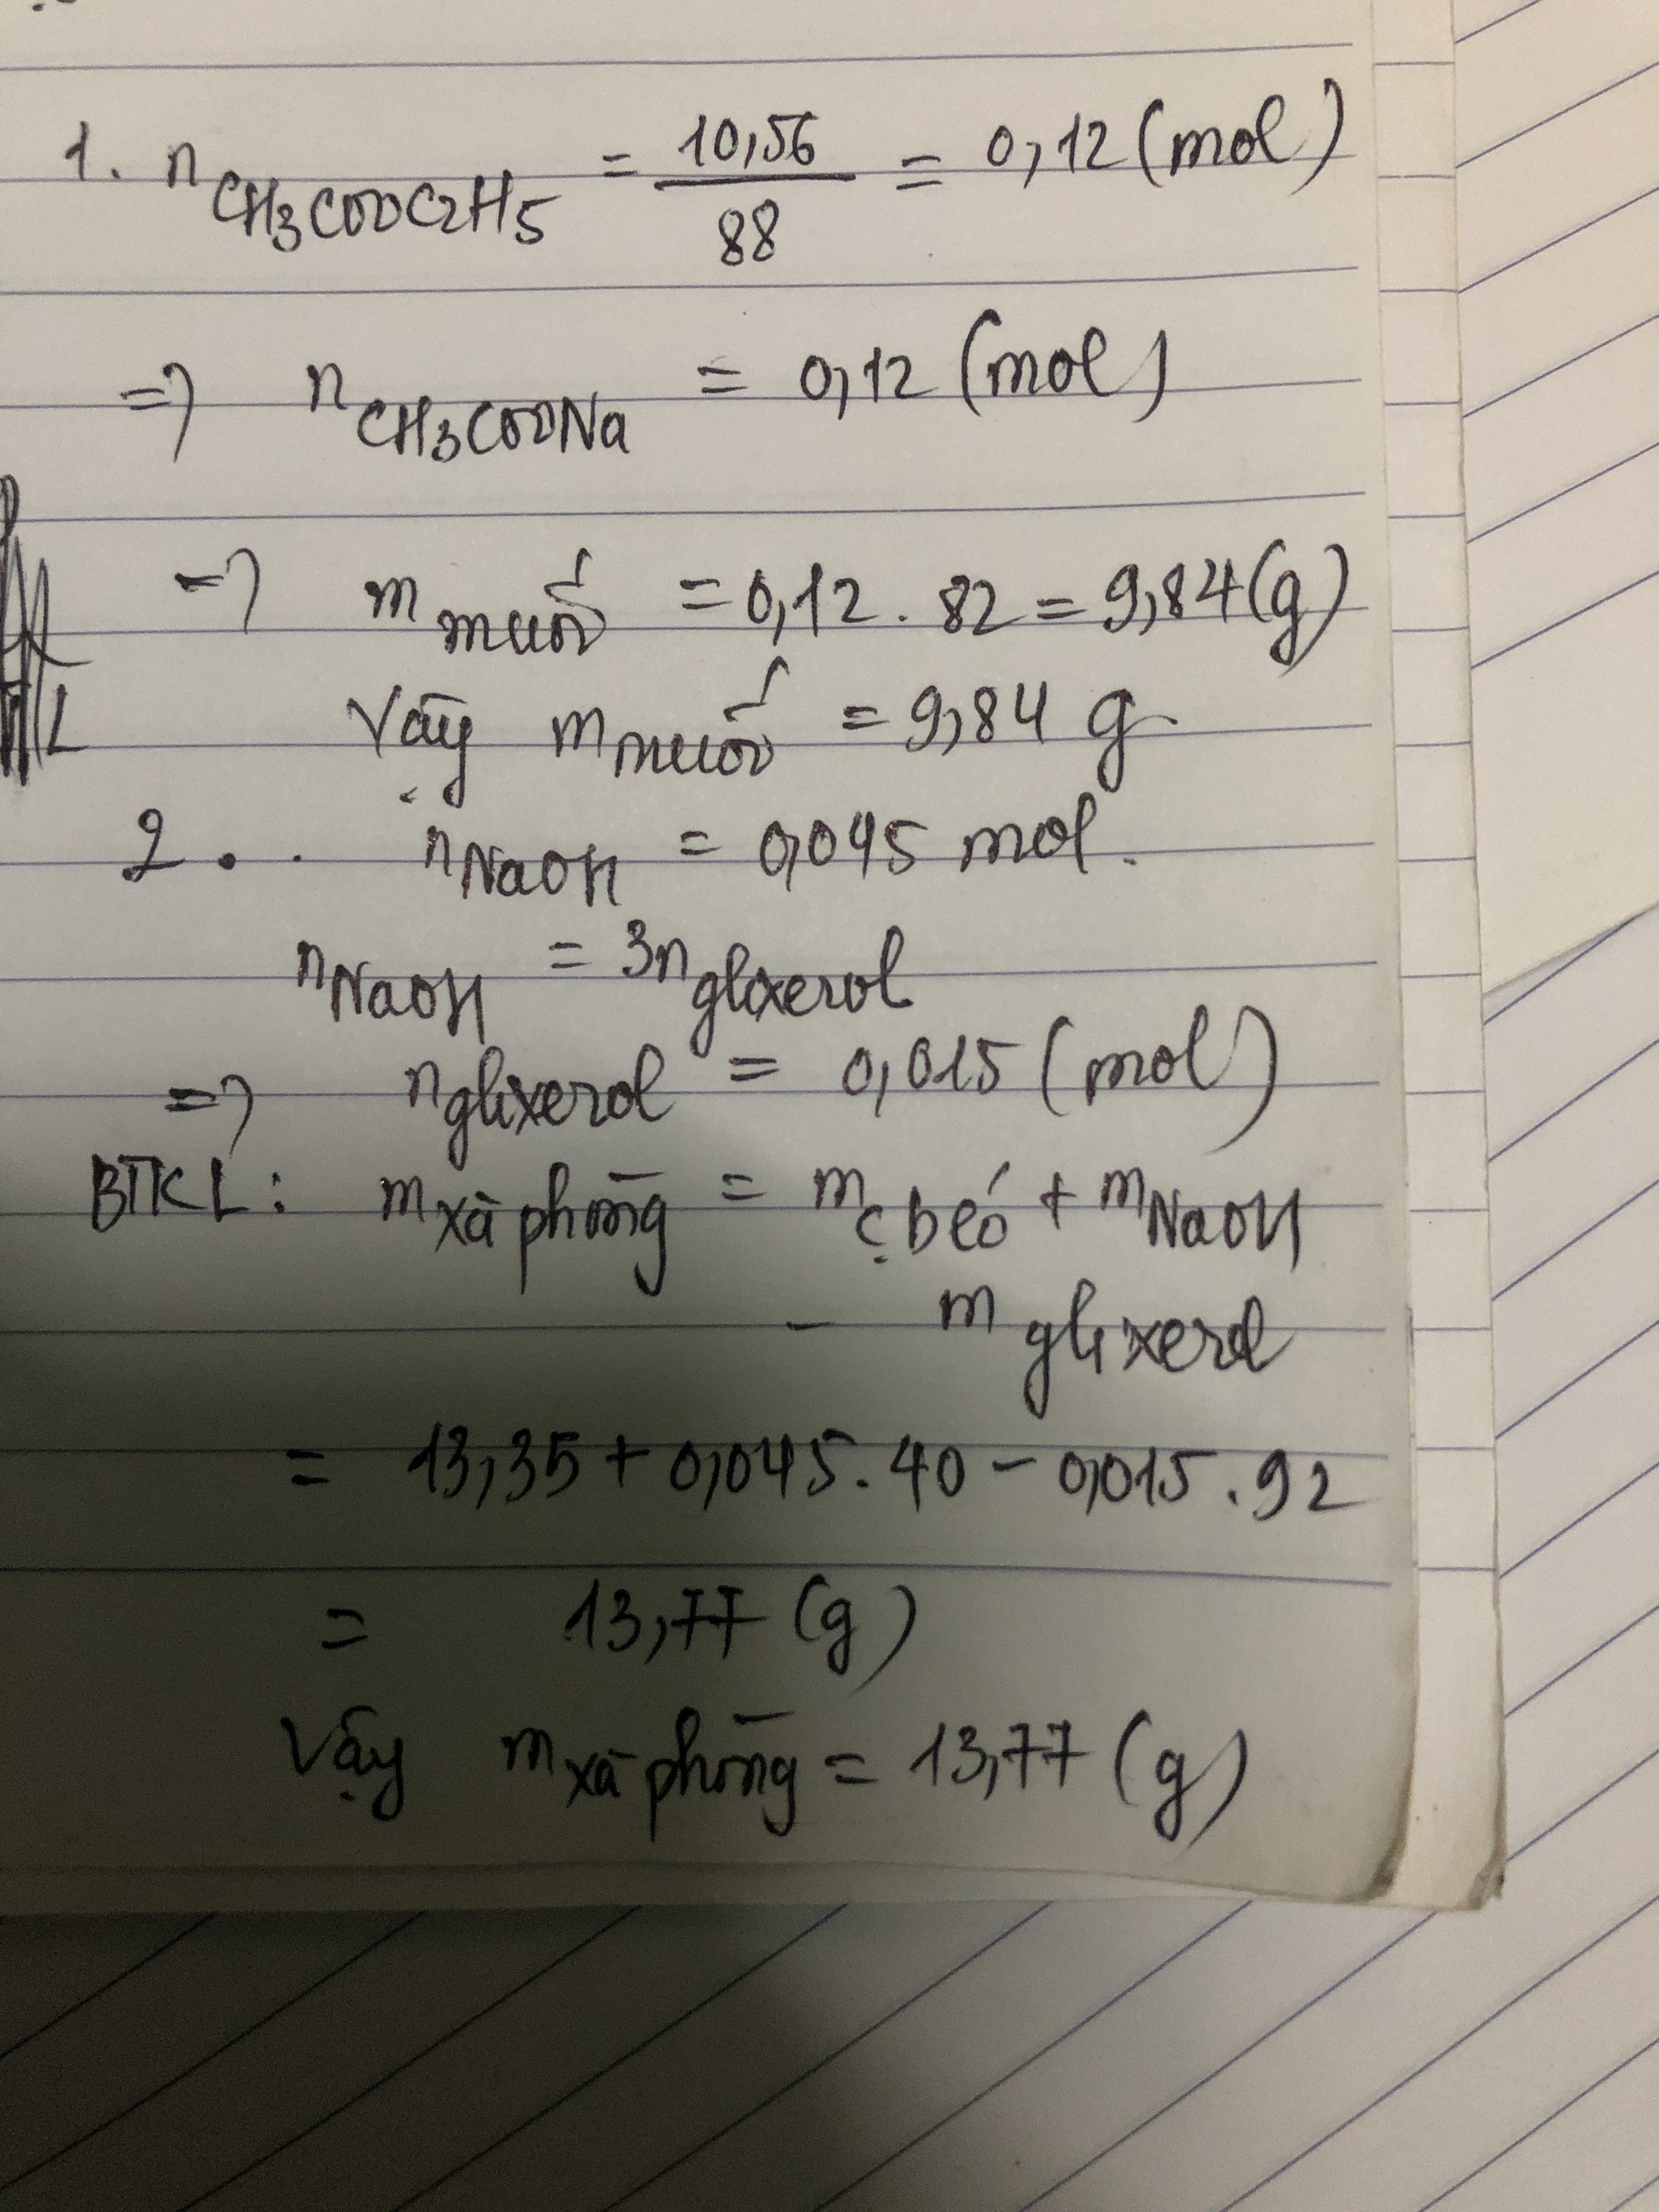 1. n CH3COOC2H5 = 10,56 / 88 = 0,12 (mol)
=> n CH3COONa = 0,12 (mol)
=> m muối = 0,12 . 82 = 9,84 (g)
Vậy m muối = 9,84 g
2. n NaOH = 0,045 mol.
n NaOH = 3n glixerol
=> n glixerol = 0,015 (mol)
BTKL: m xà phòng = m c béo + m NaOH
- m glixerol
= 13,35 + 0,045 . 40 - 0,015 . 92
= 13,77 (g)
Vậy m xà phòng = 13,77 (g)